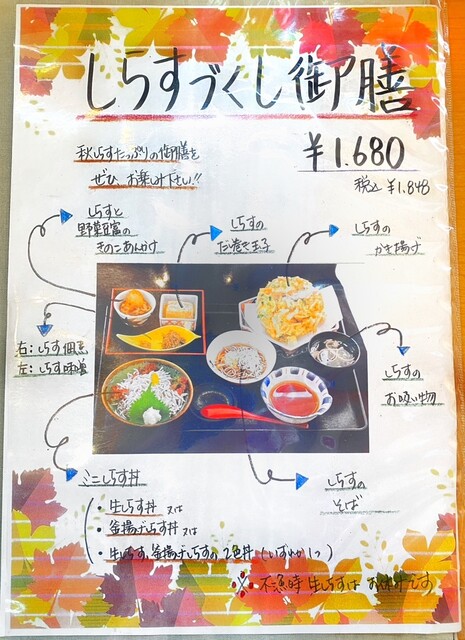 しらすづくし御膳
秋しらすたっぷりの御膳を
ぜひ お楽しみ下さい!!
¥1.680
税込 ¥1.848
しらすと
野菜豆富の
きのこあんかけ
しらすの
だし巻き玉子
しらすの
かき揚げ
右:しらす佃煮
左:しらす味噌
しらすの
お吸い物
ミニしらす丼
・生しらす丼 又は
・釜揚げしらす丼 又は
・生しらす、釜揚げしらすの2色丼(いずれか1つ)
しらすの
そば
※ 不漁時 生しらすは お休みです